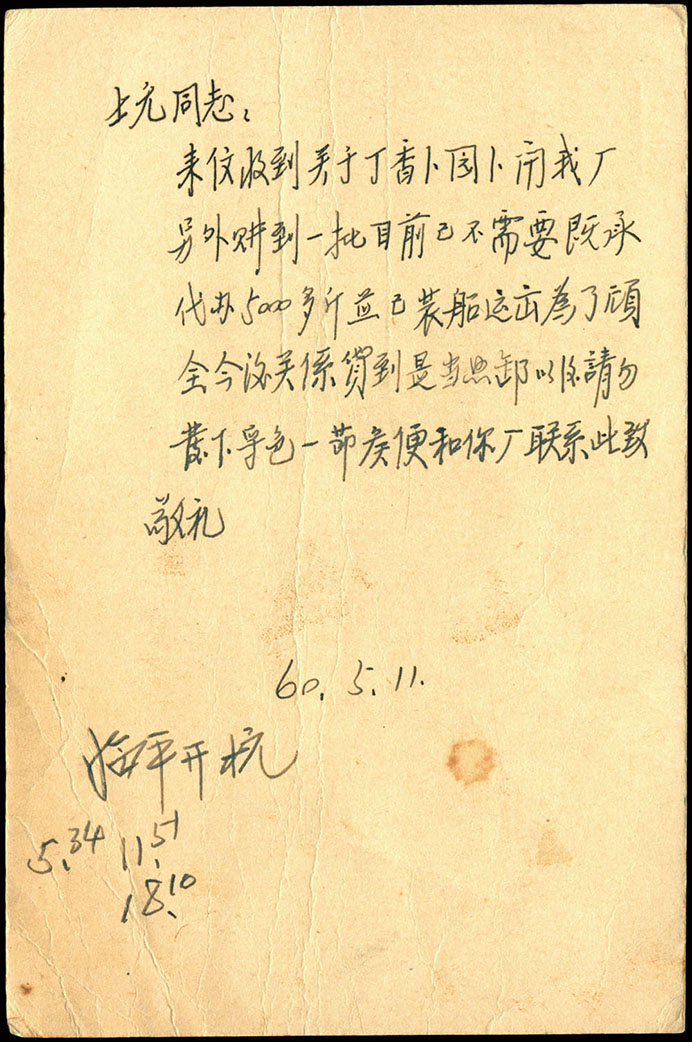 上元同志：
来信收到关于丁香卜園卜用我厂
另外购到一批目前已不需要既承
代办5000多斤並已装船运出為了顾
全今後关係貨到是当照卸以后請勿
發下导色一节候便和你厂联系此致
敬礼
60.5.11.
临平开杭
5.34 11.51
18.10